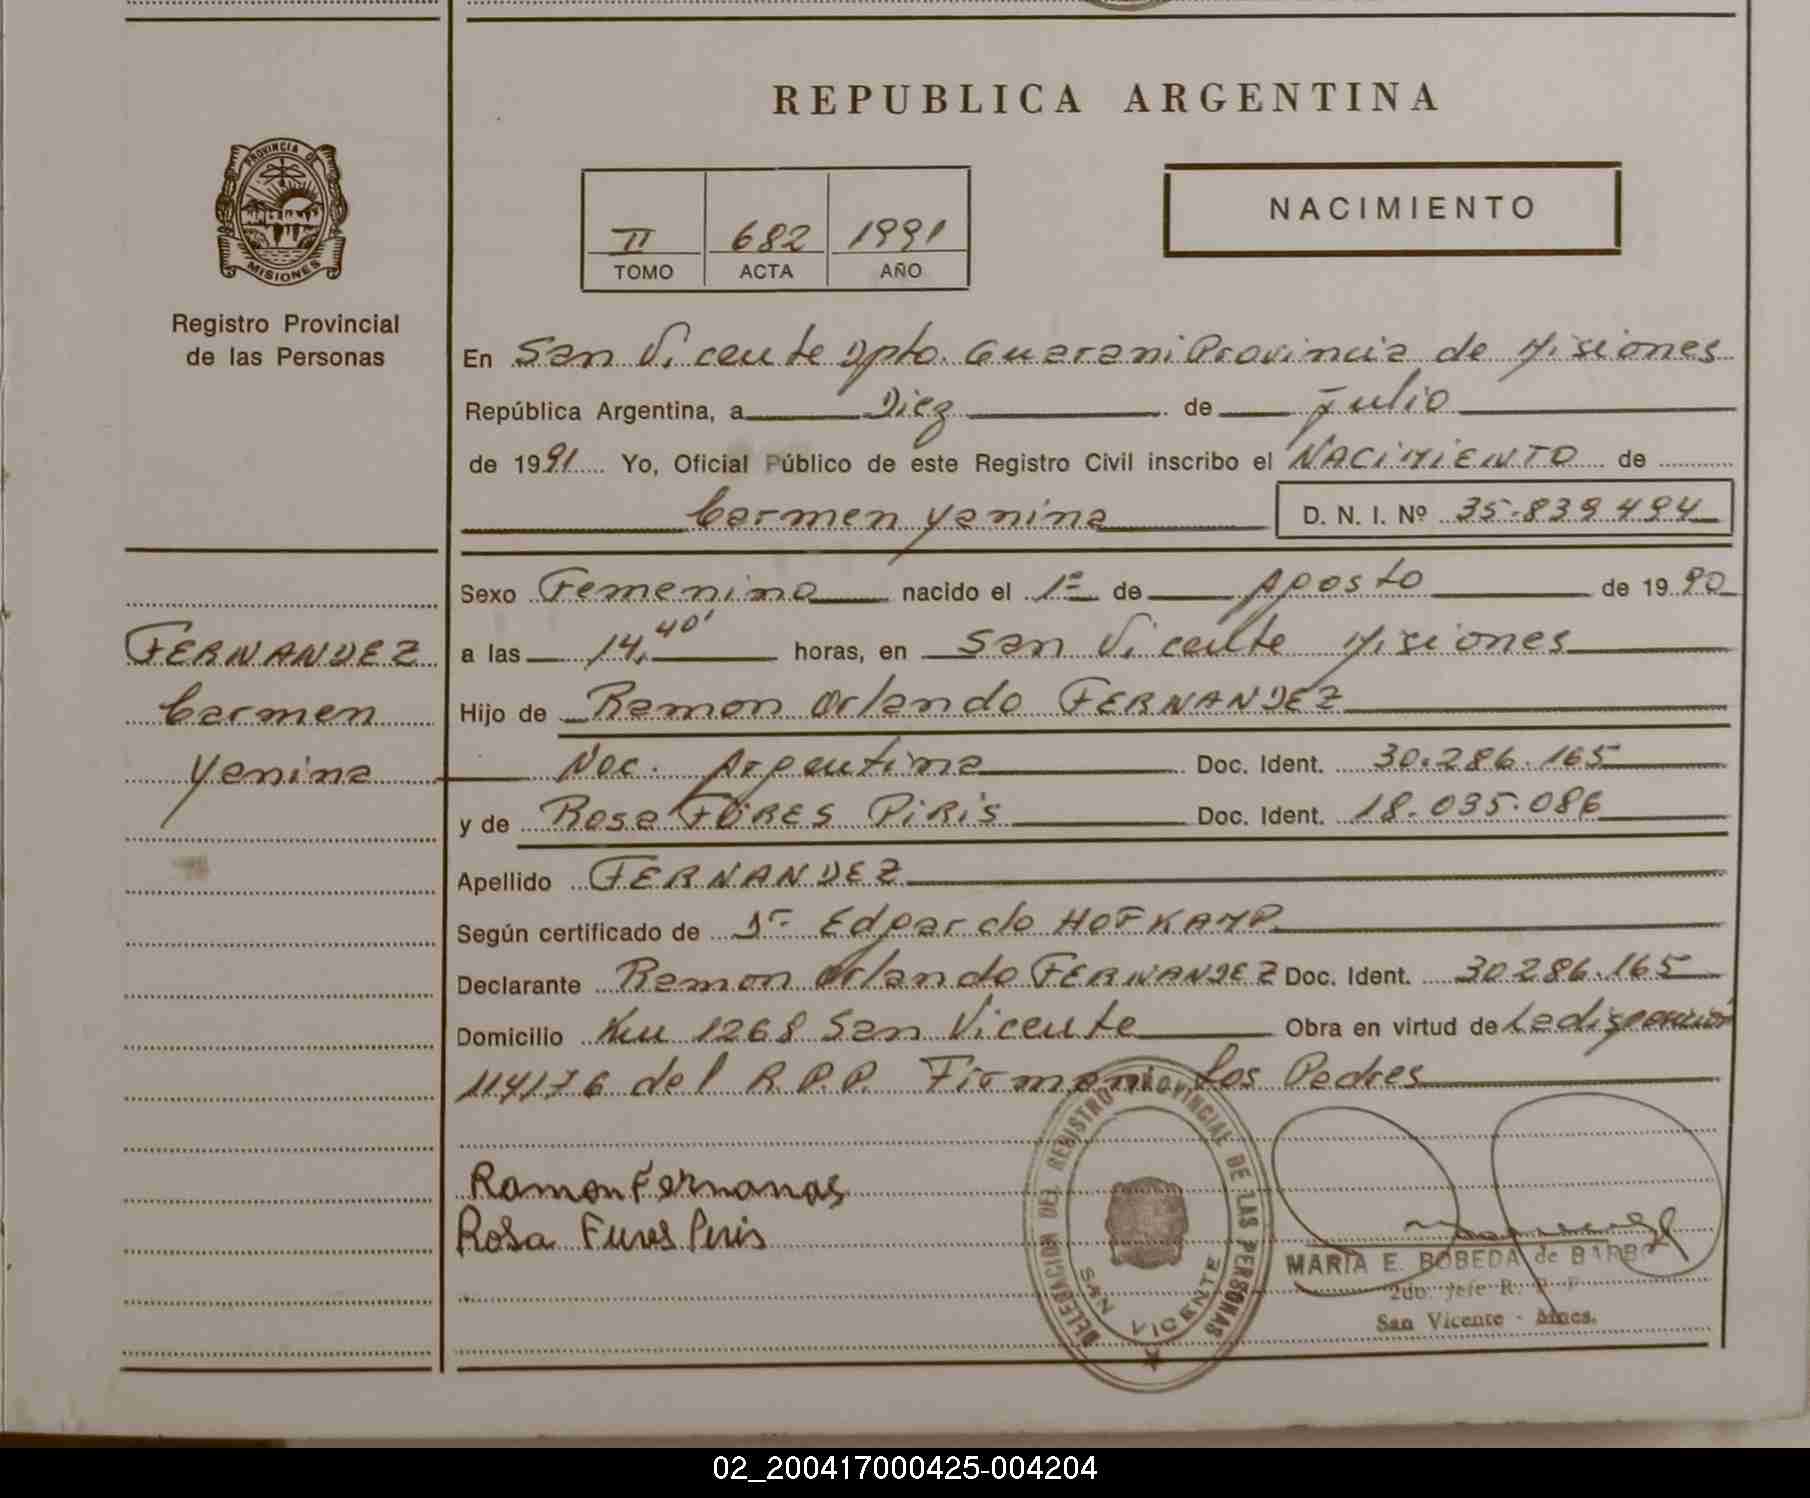 REPUBLICA ARGENTINA
PROVINCIA DE MISIONES
Registro Provincial
de las Personas
II 682 1991
TOMO ACTA AÑO
NACIMIENTO
En San Vicente Dpto. Guarani Provincia de Misiones
República Argentina, a Diez de Julio
de 1991 Yo, Oficial Público de este Registro Civil inscribo el NACIMIENTO de
Carmen Yanina D. N. I. Nº 35.839.494
FERNANDEZ
Carmen
Yanina
Sexo Femenino nacido el 1º de Agosto de 1990
a las 14,40' horas, en San Vicente Misiones
Hijo de Ramon Orlando FERNANDEZ
Nac. Argentina Doc. Ident. 30.286.165
y de Rosa FORES PIRIS Doc. Ident. 18.035.086
Apellido FERNANDEZ
Según certificado de Dr Edgardo HOFKAMP
Declarante Ramon Orlando FERNANDEZ Doc. Ident. 30286.165
Domicilio Km 1268 San Vicente Obra en virtud de La disposición
114/76 del R.P.P. Firman los Padres
Ramon Fernandes
Rosa Fures Piris
DELEGACION DEL REGISTRO PROVINCIAL DE LAS PERSONAS
SAN VICENTE
MARIA E. BOBEDA de BARBO
Sub. Jefe R. P. P.
San Vicente - Mnes.
02_200417000425-004204